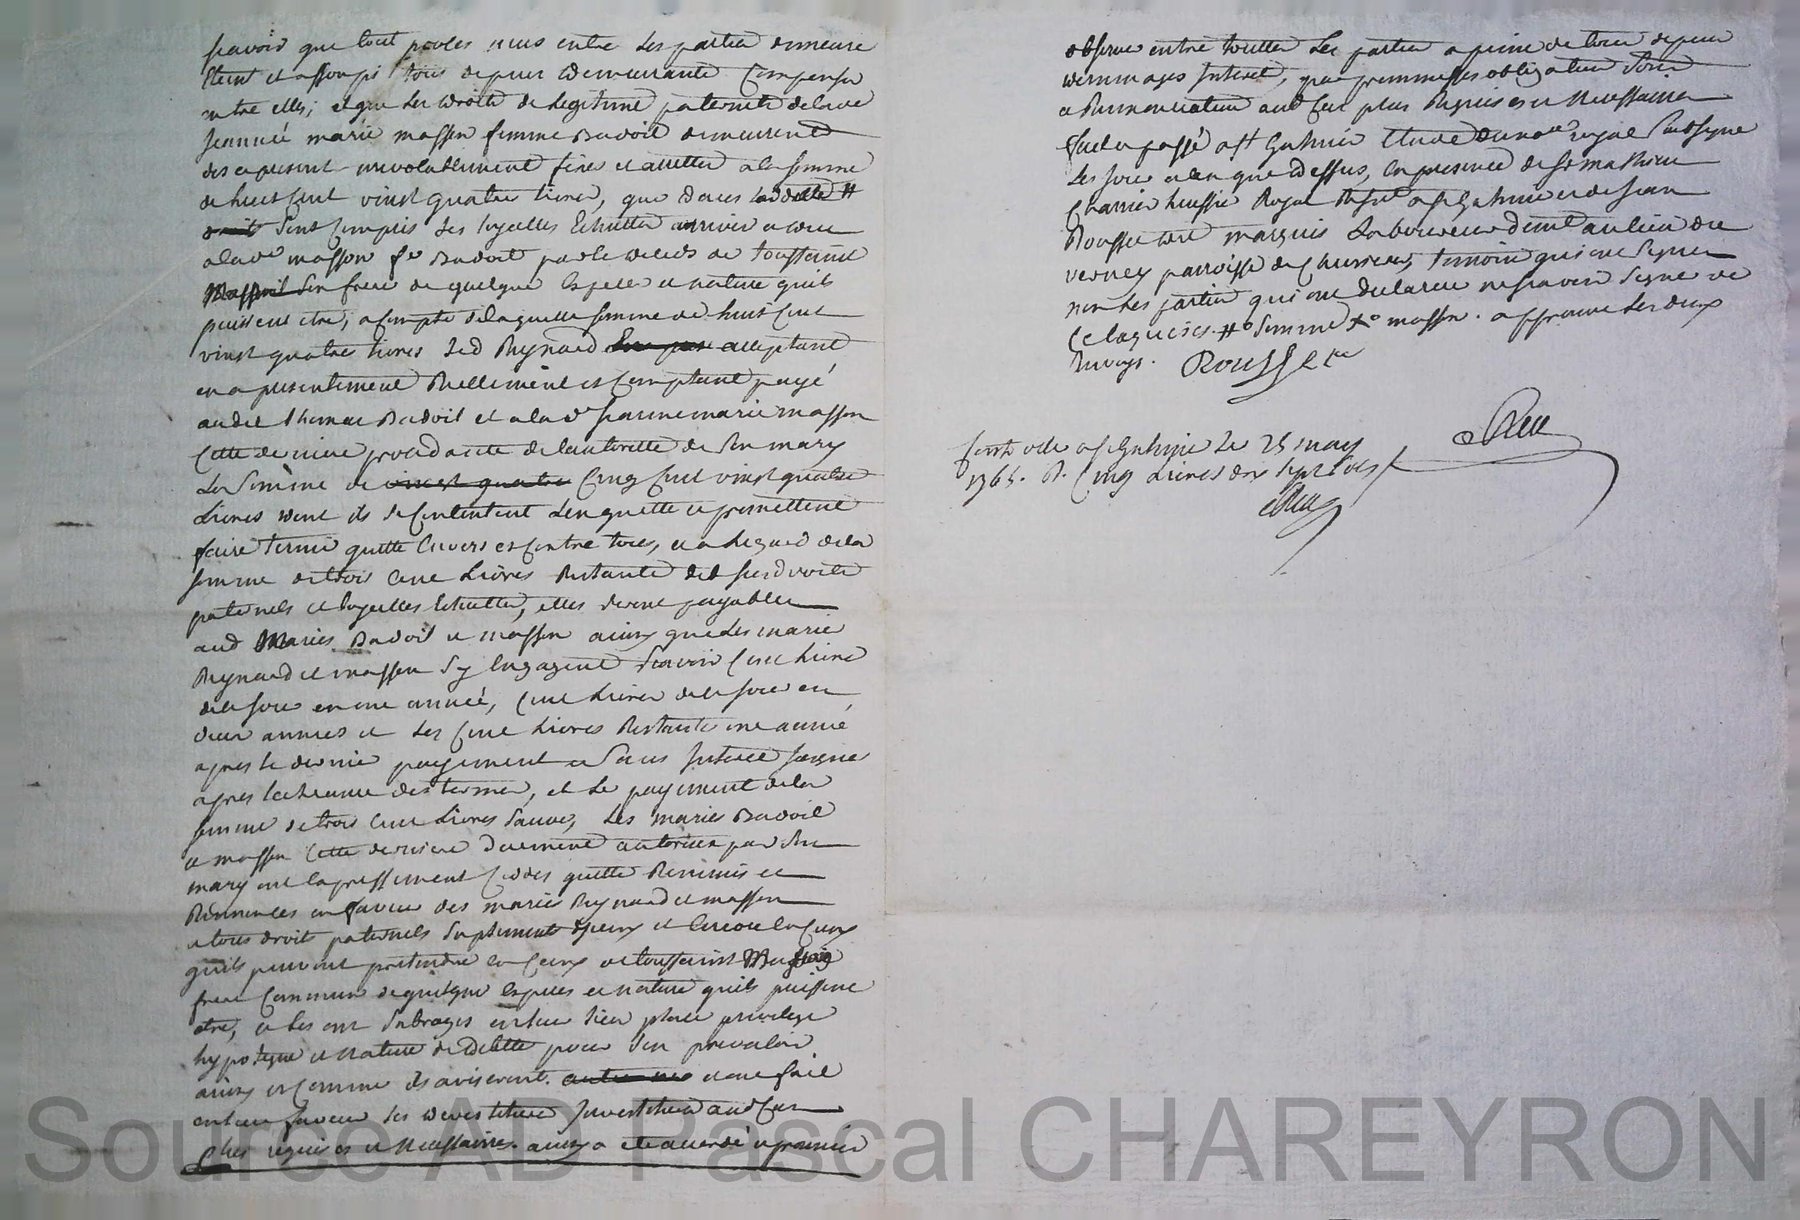 scavoir que tout procès mus entre les parties demeure
éteint et assoupi tous depens demeurants compensés
entre elles; et que les droits de legitime paternels de lade
Jeanne marie masson femme Badoil demeurent
des apresent irrevocablement fixés et arrettés a la somme
de huit cent vingt quatre livres, que dans ladtte #
sont compris les loyelles echuttes
a lade masson fe Badoil par le deceds de toussaint
son frere de quelque espece et nature quils
puissent etre, acompte de laquelle somme de huit cent
vingt quatre livres led Reynard acceptant
en a presentement reellement et comptant payé
audit thomas Badoil et a lade jeanne marie masson
cette derniere procedante de lautorité de son mary
la somme de vingt quatre cinq cent vingt quatre
livres dont ils se contentent len quitte et promettent
faire tenir quitte envers et contre tous, et a legard de la
somme de trois cent livres restante desd droits
paternels et loyelles echuttes, elles seront payables
aud mariés Badoil et masson ainsy que les mariés
Reynard et masson sy engagent scavoir cent livres
de ce jour en une année, cent livres de ce jour en
deux années et les cent livres restants une année
apres le dernier payement et sans interet jusques
apres lecheance des termes, et le payement de la
somme de trois cent livres sauve, les mariés Badoil
et masson cette derniere duement autorisée par son
mary ont expressement cedés quitté remis et
renoncés en faveur des mariés Reynard et masson
a tous droits paternels suplement diceux et encore en ceux
quils peuvent pretendre en ceux de toussaint
frere commun de quelque especes et nature quils puissent
etre, et les ont subrogés en leur lieu place privilege
hypoteque et nature de dette pour sen prevaloir
ainsy et comme ils aviseront. et ont fait
en leur faveur les devestiture investiture aud cas
plus requises et necessaires. ainsy a ete accordé et promis
observer entre touttes les parties a peine de tous depens
dommages interet, par promesses obligation
et renonciation aud cas plus requises et necessaires
fait et passé a st Galmier etude du nore royal soussigné
les jour et an que dessus, en presence de sr mathieu
Charrier huissier Royal resid a st Galmier et de jean
Rousset dit marquis laboureur demt au lieu du
verney parroisse de Chevrieres, temoins qui ont signés
non les parties qui ont declarés ne scavoir signer de
ce enquises. #o somme xo masson. approuve les deux
renvoys. Rousset
Conlle a st Galmier le 25 may
1765. R. Cinq livres dix sept sols